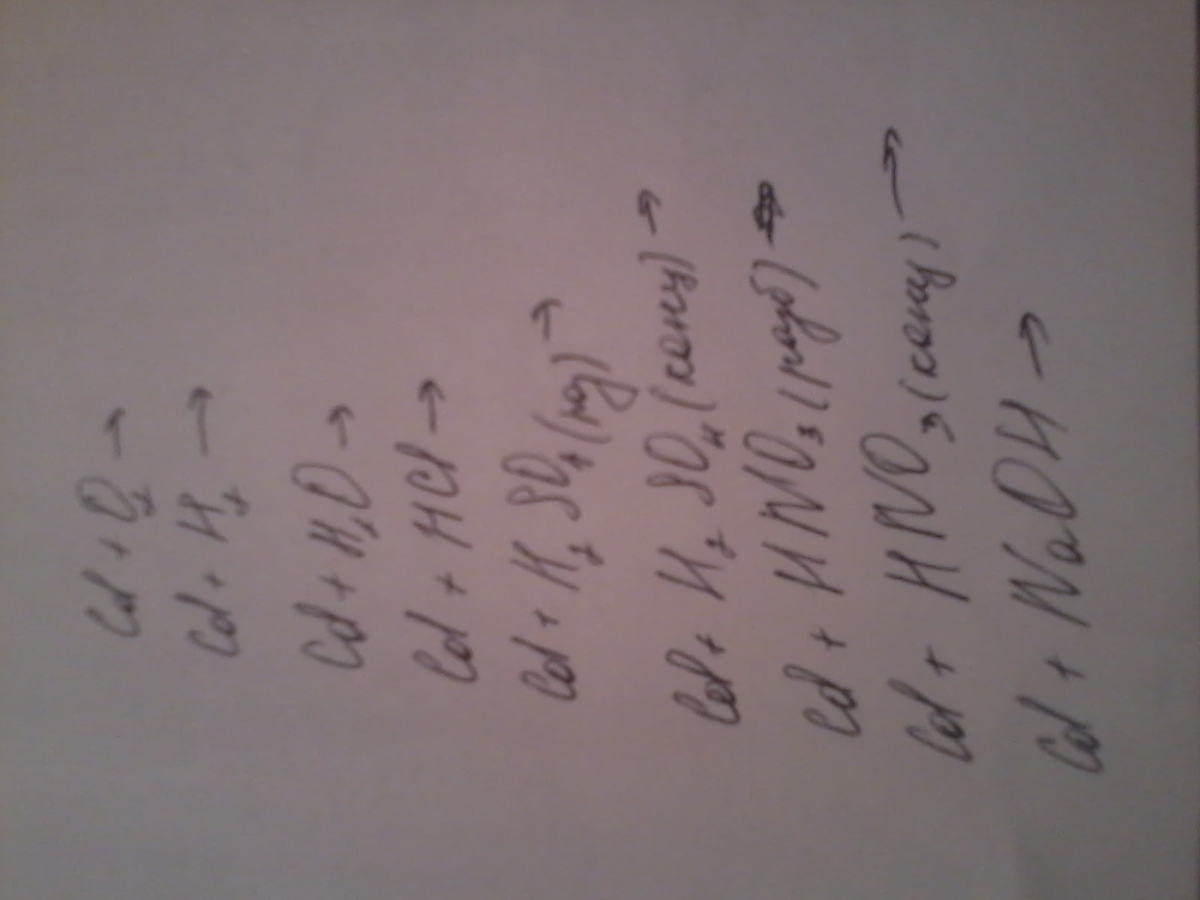 Cd + O₂ →
Cd + H₂ →
Cd + H₂O →
Cd + HCl →
Cd + H₂SO₄ (раз) →
Cd + H₂SO₄ (конц) →
Cd + HNO₃ (разб) →
Cd + HNO₃ (конц) →
Cd + NaOH →